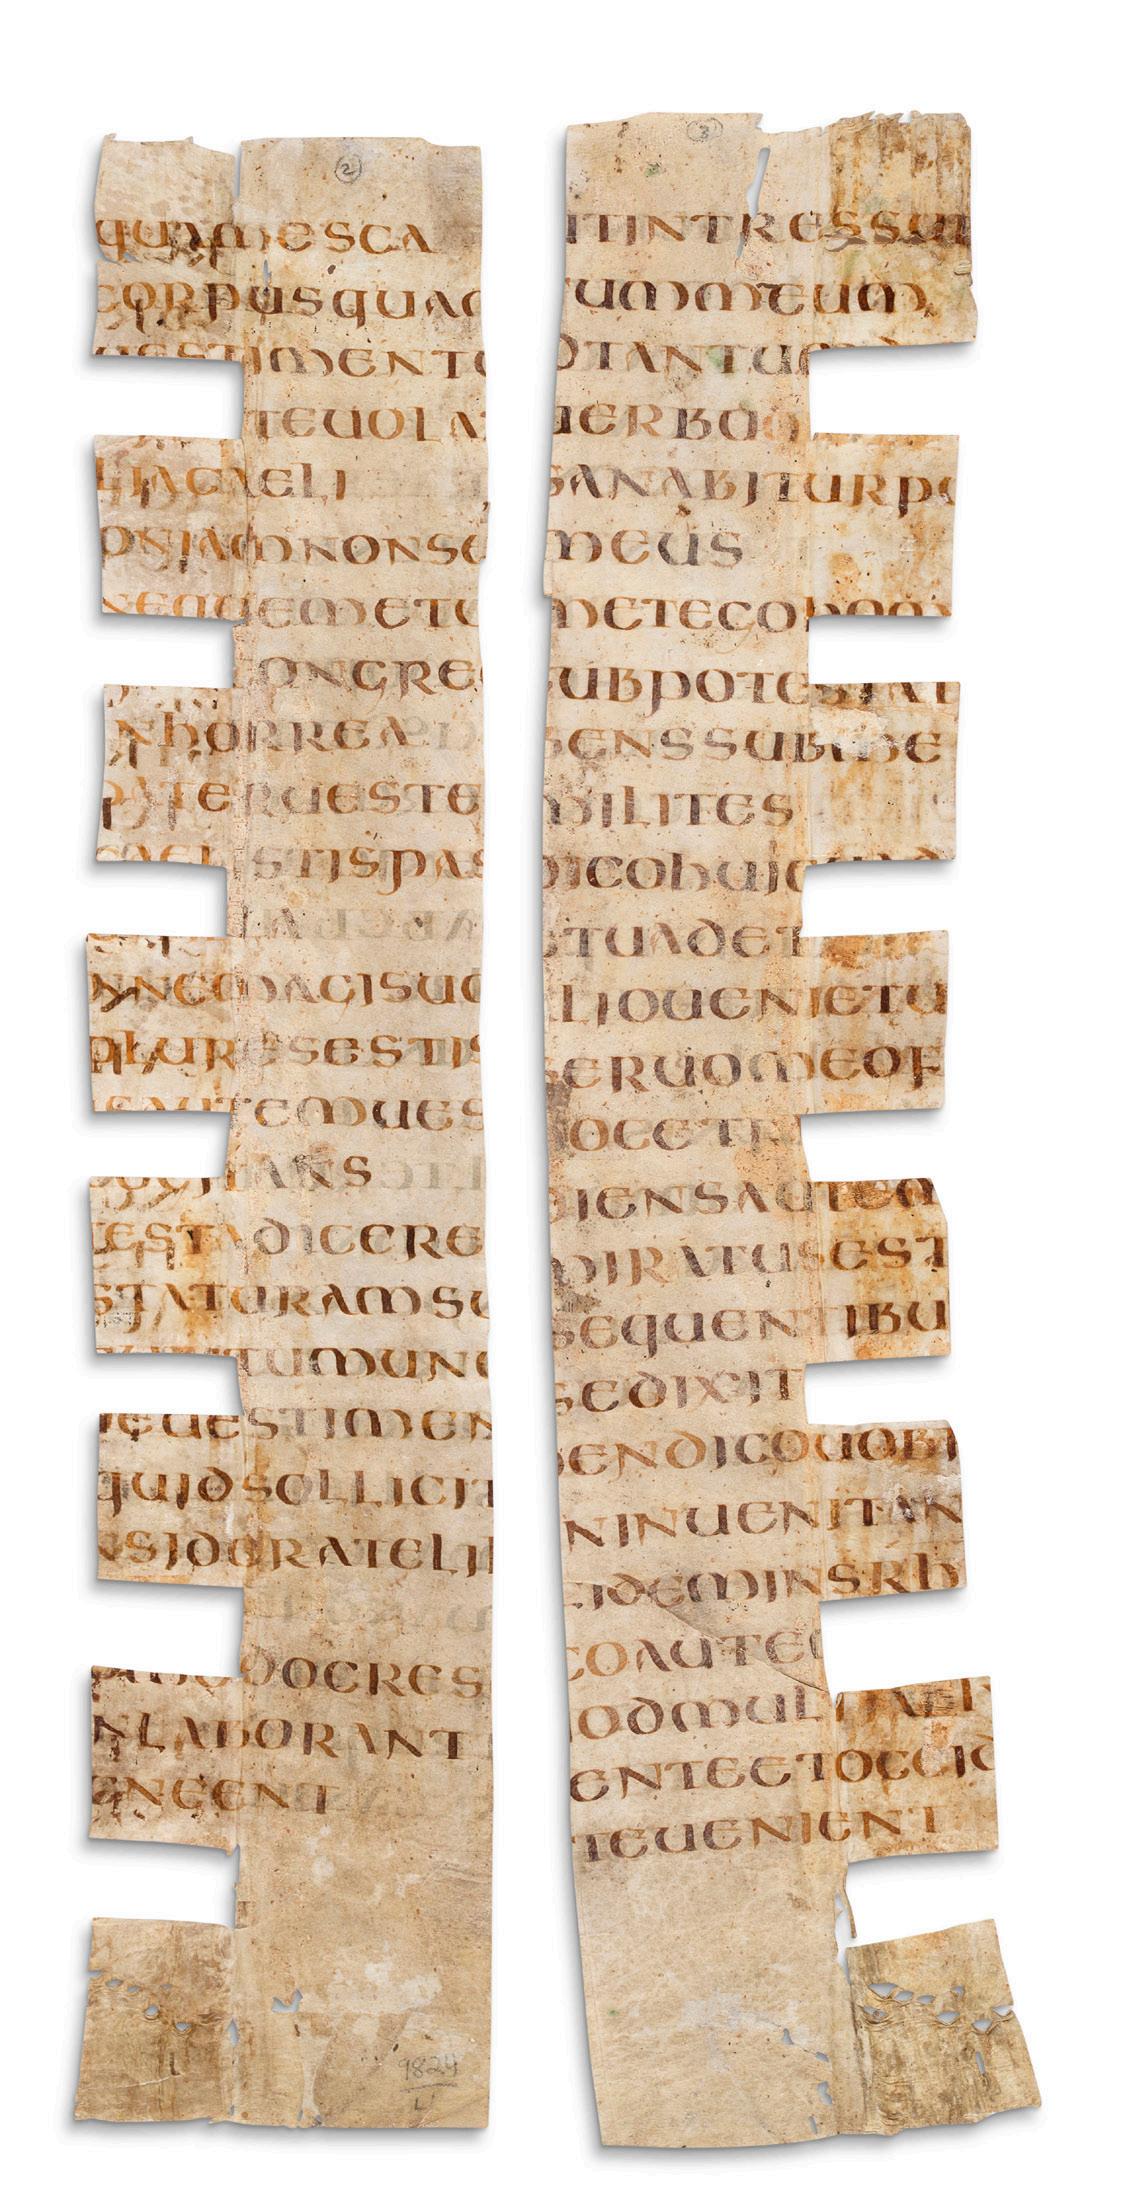 2
quam esca
corpus qua
uestimento
te uola
lia caeli
quoniam non se
neque metu
ongre
n horrea
pater ueste
caelestis pas
nne magis uo
plures estis
autem ues
ans
test adicere
staturam su
tum un
e uestimen
quid sollicit
nsiderate li
modo cres
n laborant
e neent
9824
L
3
it intres su
tum meum
d tantum
uerbo
sanabitur po
meus
m et ego homo
sub potestat
ens sub me
milites
dico huic
t uade et
lio ueni et u
seruo meo f
oc et f
diens autem
miratus est
sequentibu
se dixit
men dico uobi
n inueni tan
fidem in srh
co autem
od multi
ente et occid
te uenient